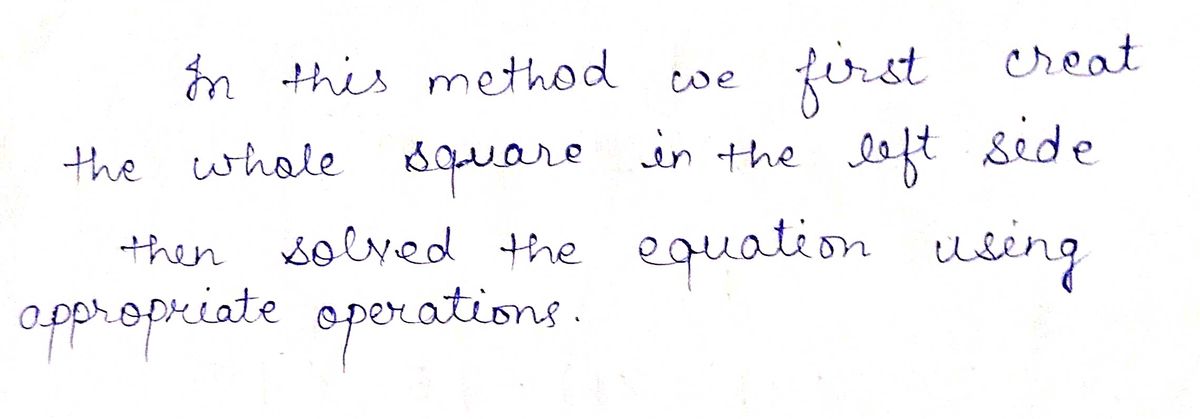 In this method we first creat
the whole square in the left side
then solved the equation using
appropriate operations.